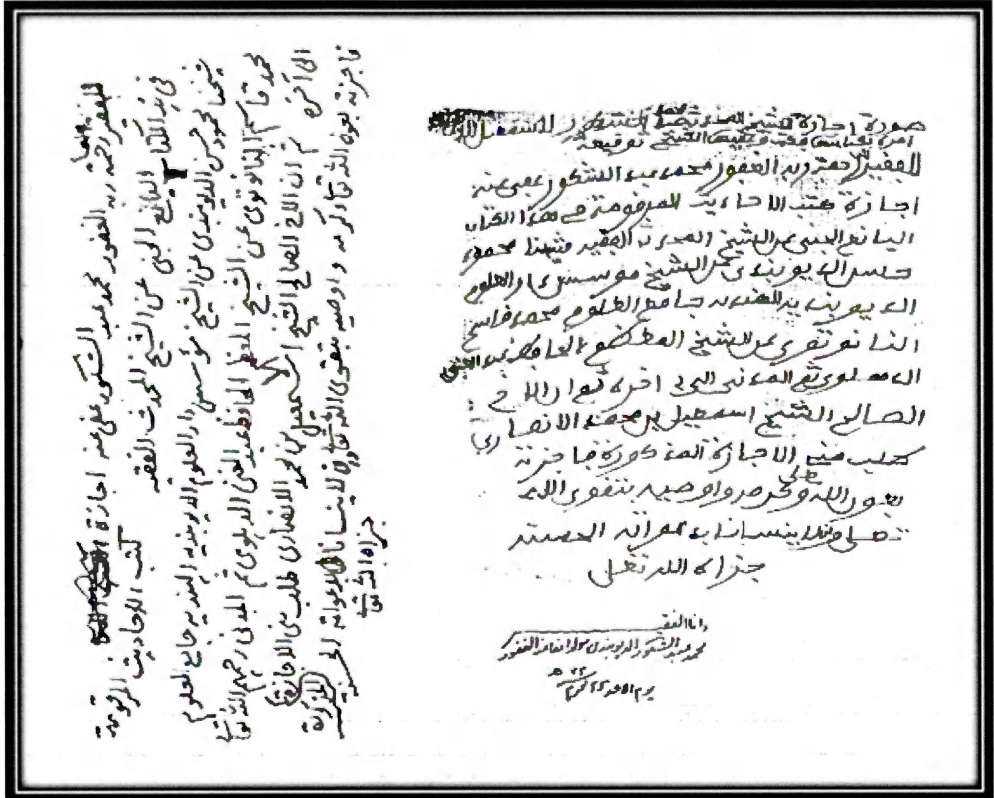 صورة اجازة الشيخ محمد عبد الشكور
توقيعه
للفقير لرحمة ربه الغفور محمد عبد الشكور عفى عنه
اجازة كتب الاحاديث المرقومة في هذا الكتاب
اليانع الجنى عن الشيخ المحدث الفقيه شيخنا محمود
حسن الديوبندى عن الشيخ موسس دار العلوم
الديوبنديه الهنديه جامع العلوم محمد قاسم
النانوتوى عن الشيخ المعظم الحافظ عبد الغنى
الدهلوى ثم المدنى الى اخره ثم ان الاخ
الصالح الشيخ اسمعيل بن محمد الانصاري
طلب منى الاجازة المذكورة فاجزته
بعون الله وكرمه واوصيه بتقوى الله
تعلى وان لا ينسانا بدعواته الحسنة
جزاه الله تعلى
وانا الفقير
محمد عبد الشكور الديوبندى
يوم الاحد ٢٥ محرم
للفقير لرحمة ربه الغفور محمد عبد الشكور عفى عنه اجازة
كتب الاحاديث المرقومة
فى هذا الكتاب اليانع الجنى عن الشيخ المحدث الفقيه
شيخنا محمود حسن الديوبندى عن الشيخ مؤسس دار العلوم الديوبنديه الهنديه جامع العلوم
محمد قاسم النانوتوى عن الشيخ المعظم الحافظ عبد الغنى الدهلوى ثم المدنى رحمهم الله تعا
الى آخره ثم ان الاخ الصالح الشيخ اسمعيل بن محمد الانصارى طلب منى الاجازة
المذكورة
فاجزته بعون الله تعا وكرمه واوصيه بتقوى الله تعا وان لا ينسانا فى دعواته الحسنة
جزاه الله تعا